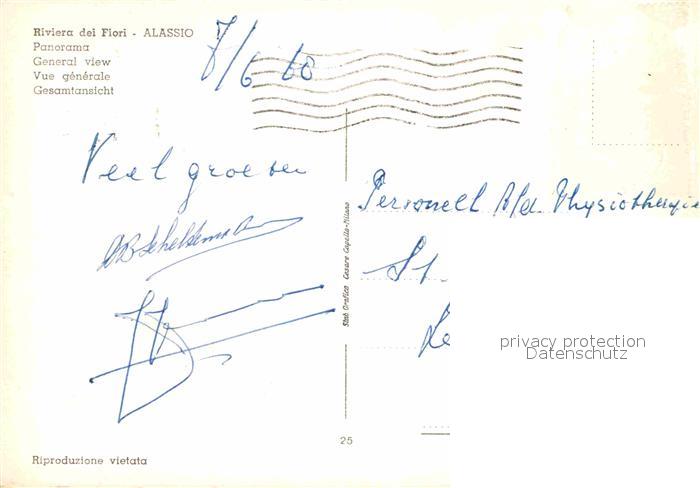 Riviera dei Fiori - ALASSIO
Panorama
General view
Vue générale
Gesamtansicht
7/6 60
Veel groeten
Personeel Afd. Physiotherapie
St.
Stab. Grafico Cesare Capello-Milano
privacy protection
Datenschutz
25
Riproduzione vietata